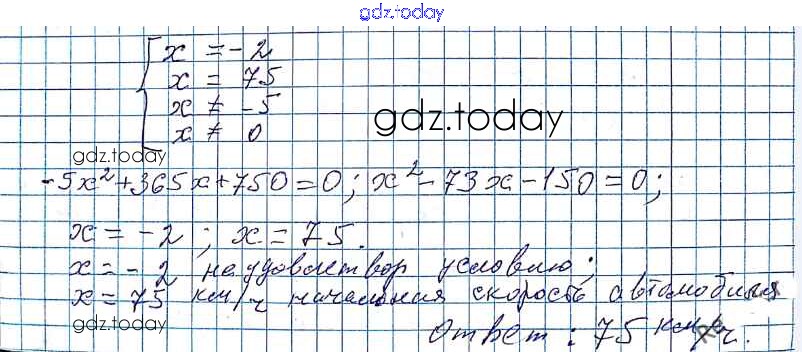 gdz.today
x = -2
x = 75
x ≠ -5
gdz.today
x ≠ 0
gdz.today
-5x²+365x+750=0; x²-73x-150=0;
x = -2 ; x = 75.
x = -2 не удовлетвор условию;
x = 75 км/ч начальная скорость автомобиля
gdz.today
Ответ : 75 км/ч.